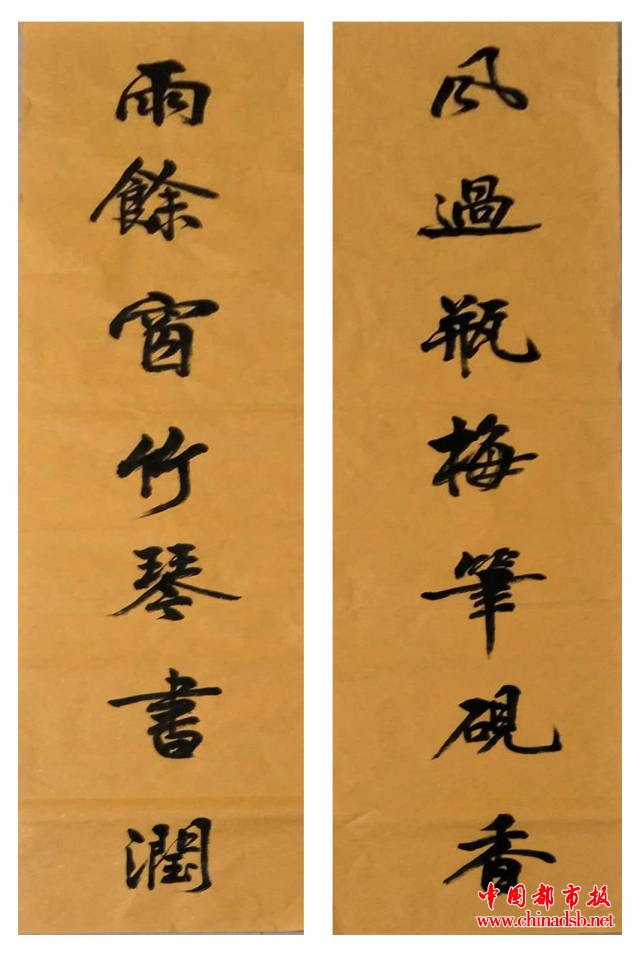 風過瓶梅筆硯香
雨餘窗竹琴書潤
中国都市报
www.chinadsb.net